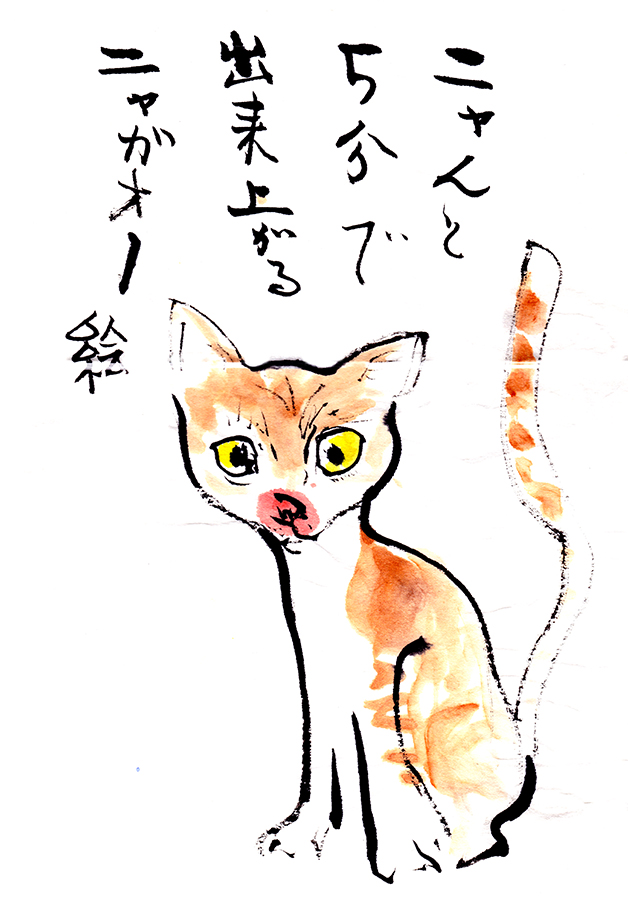 ニャんと
5分で
出来上がる
ニャがオー
絵